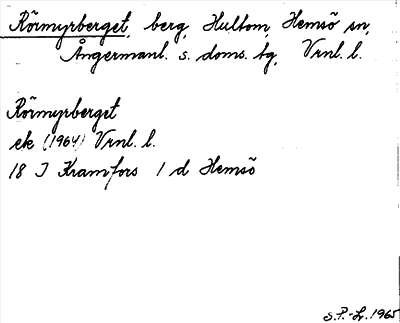 Rörmyrberget, berg, Hultom, Hemsö sn,
Ångermanl. s. doms. tg, Vrnl. l.
Rörmyrberget
ek (1964) Vrnl. l.
18 I Kramfors 1 d Hemsö
S.P.-L. 1965